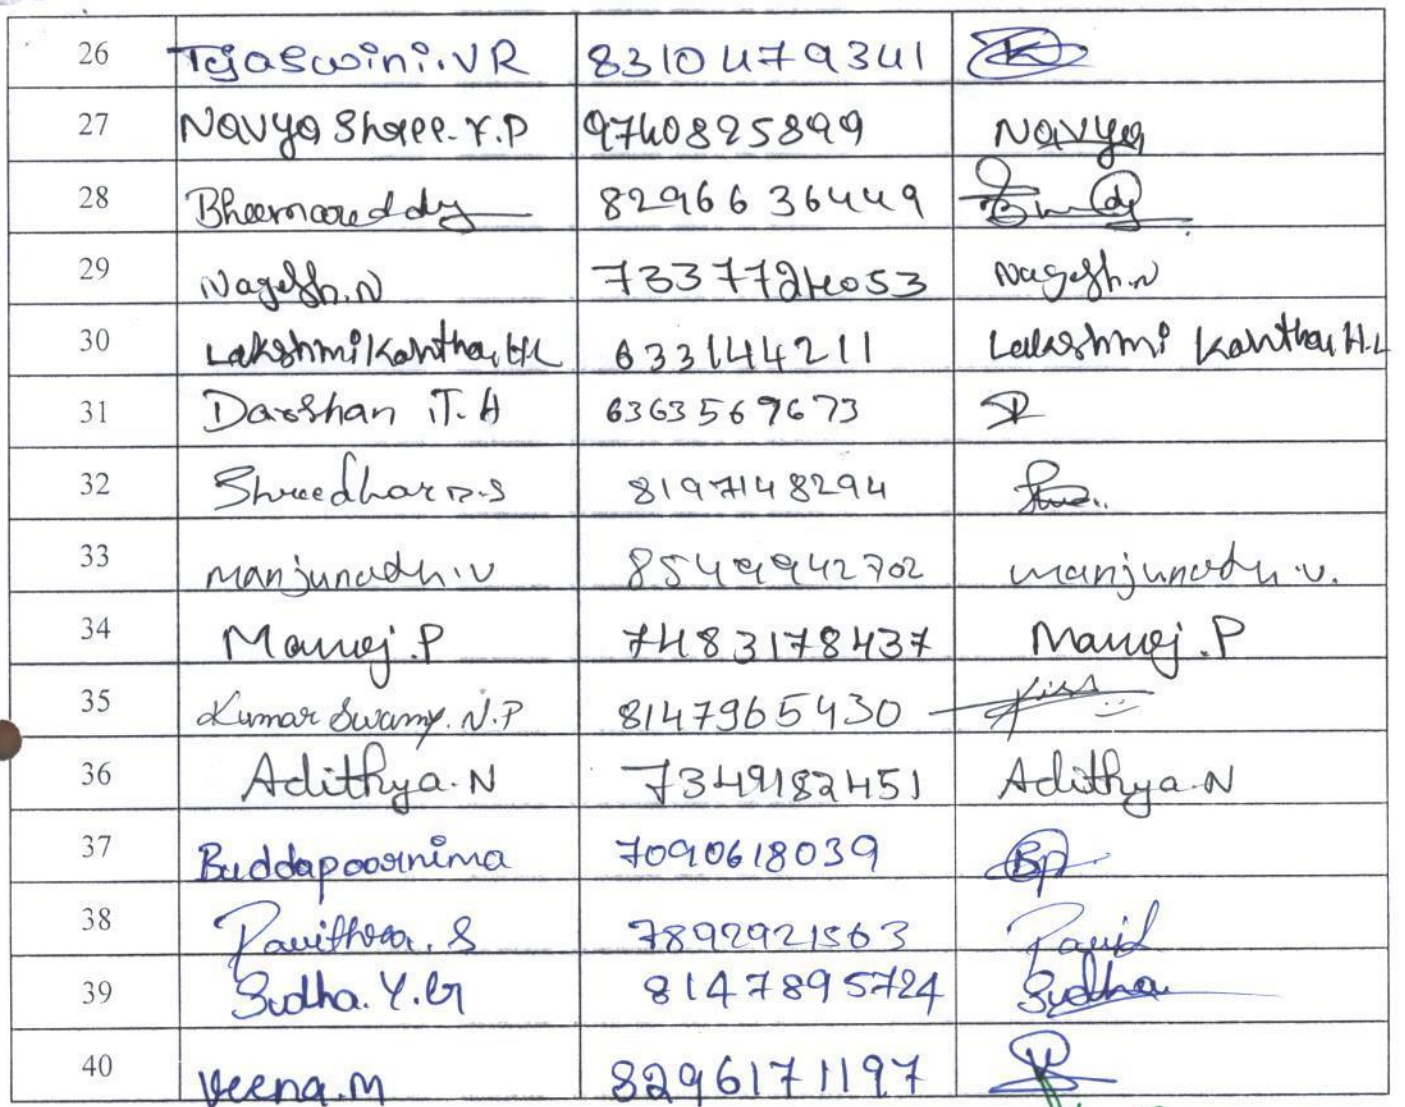 26 Tejaswini.VR 8310479341
27 Navya Shree.Y.P 9740825899 Navya
28 Bheemareddy 8296636449
29 Nagesh.N 7337724053 Nagesh.N
30 Lakshmikantha H.L 633144211 Lakshmi Kantha H.L
31 Darshan T.H 6363569673
32 Shreedhar D.S 8197148294
33 manjunath.v 8549942702 manjunath.v.
34 Manoj.P 7483178437 Manoj.P
35 Kumar Swamy.N.P 8147965430
36 Adithya.N 7349182451 Adithya.N
37 Buddapoornima 7090618039 Bp
38 Pavithra.S 7892921563 Pavi
39 Sudha.Y.G 8147895724 Sudha
40 Veena.M 8296171197